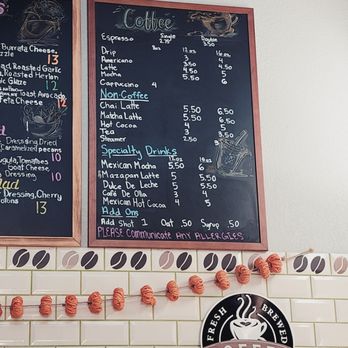 Burrata Cheese,
13
Roasted Garlic
Roasted Heirloom
Basil Cheese
12
Toast Avocado,
Feta Cheese
12
Dressing Dried
Caramelized
10
Tomatoes
Goat Cheese
Dressing,
10
Dressing, Cherry
13
Coffee
Espresso Single Double
2.75 3.50
8oz 12oz 16oz
Drip 3 4
Americano 3 4
Latte 4.50 5
Mocha 5 6
Cappuccino 4
Non-Coffee
Chai Latte 5.50 6.50
Matcha Latte 5.50 6.50
Hot Cocoa 4 5
Tea 3 3
Steamer 2.50
Specialty Drinks
12oz 16oz
Mexican Mocha 5.50 6.50
Mazapan Latte 5 6
Dulce De Leche 5 5.50
Café De Olla 3 4
Mexican Hot Cocoa 4 5
Add Ons
Add Shot 1 Oat .50 Syrup .50
PLEASE Communicate ANY ALLERGIES
FRESH BREWED
COFFEE